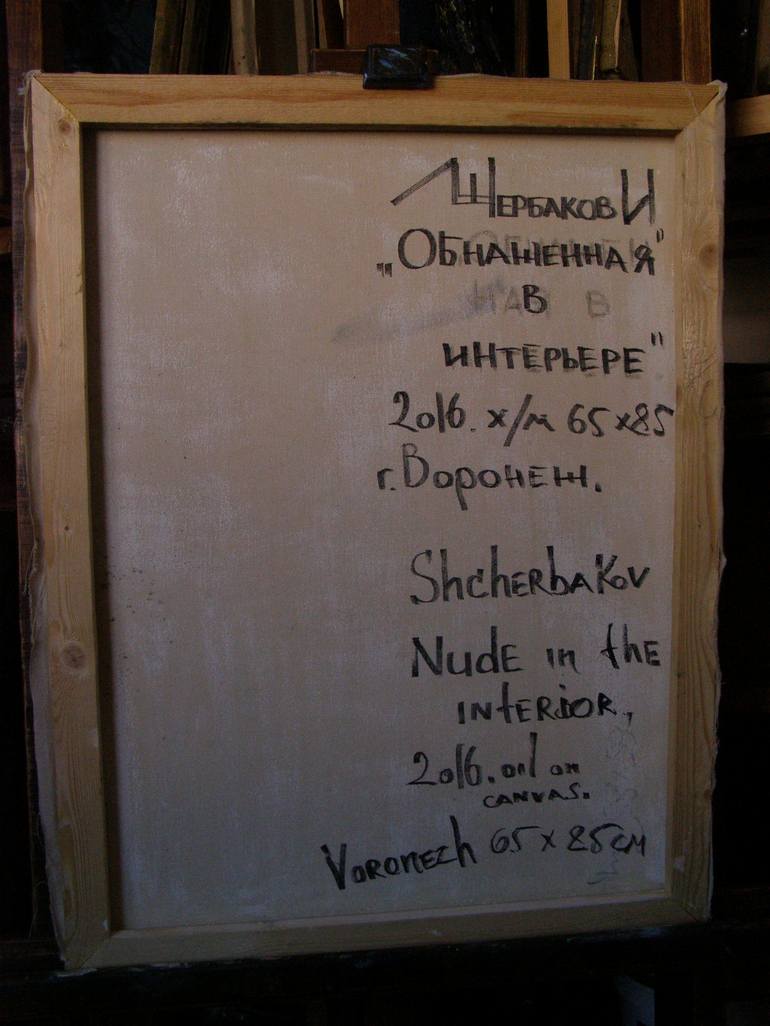 Щербаков И
„Обнаженная"
в
интерьере"
2016. х/м 65х85
г. Воронеж.
Shcherbakov
Nude in the
interior,
2016. oil on
canvas.
Voronezh 65 x 85 см